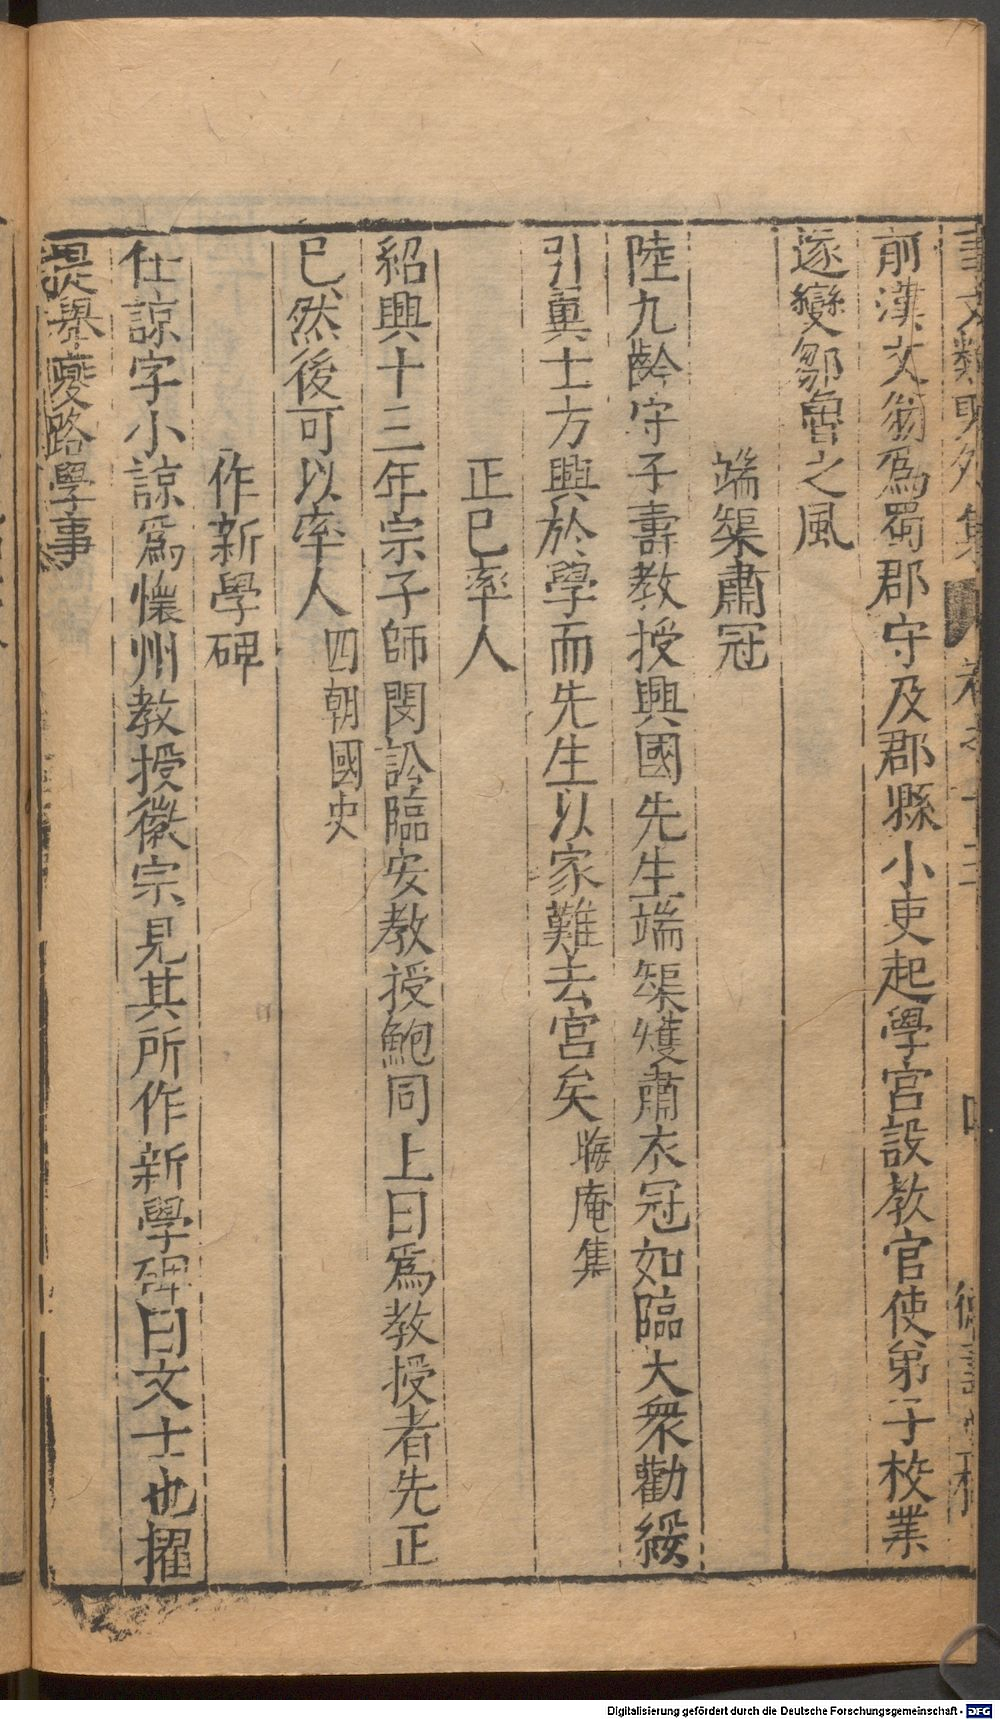 事文類聚外集 卷之十二
前漢文翁爲蜀郡守及郡縣小吏起學宮設教官使弟子校業
遂變鄒魯之風
端榘肅冠
陸九齡字子壽教授興國先生端榘矱肅衣冠如臨大衆勸綏
引翼士方興於學而先生以家難去宮矣 晦庵集
正已率人
紹興十三年宗子師閔訟臨安教授鮑同上曰爲教授者先正
已然後可以率人 四朝國史
作新學碑
任諒字小諒爲懷州教授徽宗見其所作新學碑曰文士也擢
提舉夔路學事
Digitalisierung gefördert durch die Deutsche Forschungsgemeinschaft - DFG